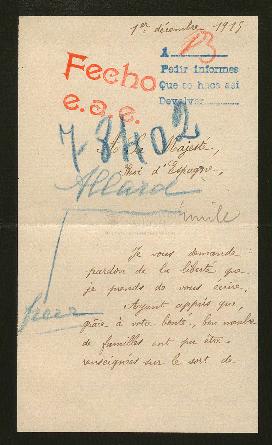 1er décembre 1915
1
13
Pedir informes
Que se haga así
Devolver
Fecho
e.a.e.
78402
A Sa Majesté,
Roi d'Espagne,
Allard
Émile
Je vous demande
pardon de la liberté que
je prends de vous écrire.
Ayant appris que,
grâce à votre bonté, bon nombre
de familles ont pu être
renseignées sur le sort de